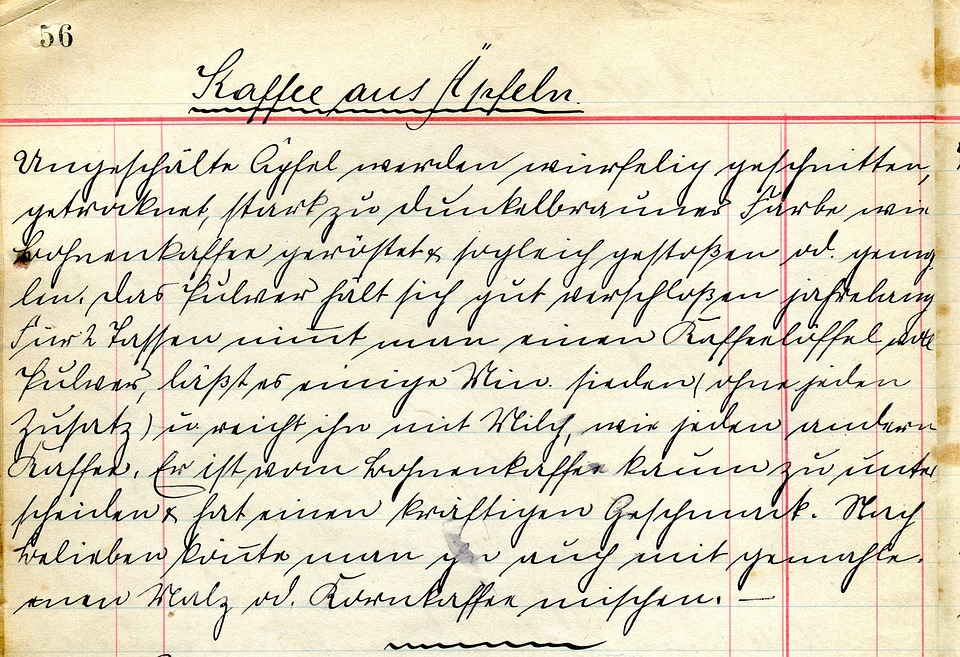 56
Kaffee aus Äpfeln.
Ungeschälte Äpfel werden würfelig geschnitten,
getrocknet, stark zu dunkelbrauner Farbe wie
Bohnenkaffee geröstet & sogleich gestoßen od. gema
len. Das Pulver hält sich gut verschloßen jahrelang
Für 2 Tassen nimmt man einen Kaffeelöffel voll
Pulver, läßt es einige Min. sieden (ohne jeden
Zusatz) u reicht ihn mit Milch, wie jeden andern
Kaffee. Er ist vom Bohnenkaffee kaum zu unter
scheiden & hat einen kräftigen Geschmack. Nach
Belieben könnte man ihn auch mit gemahle-
nen Malz od. Kornkaffee mischen. —